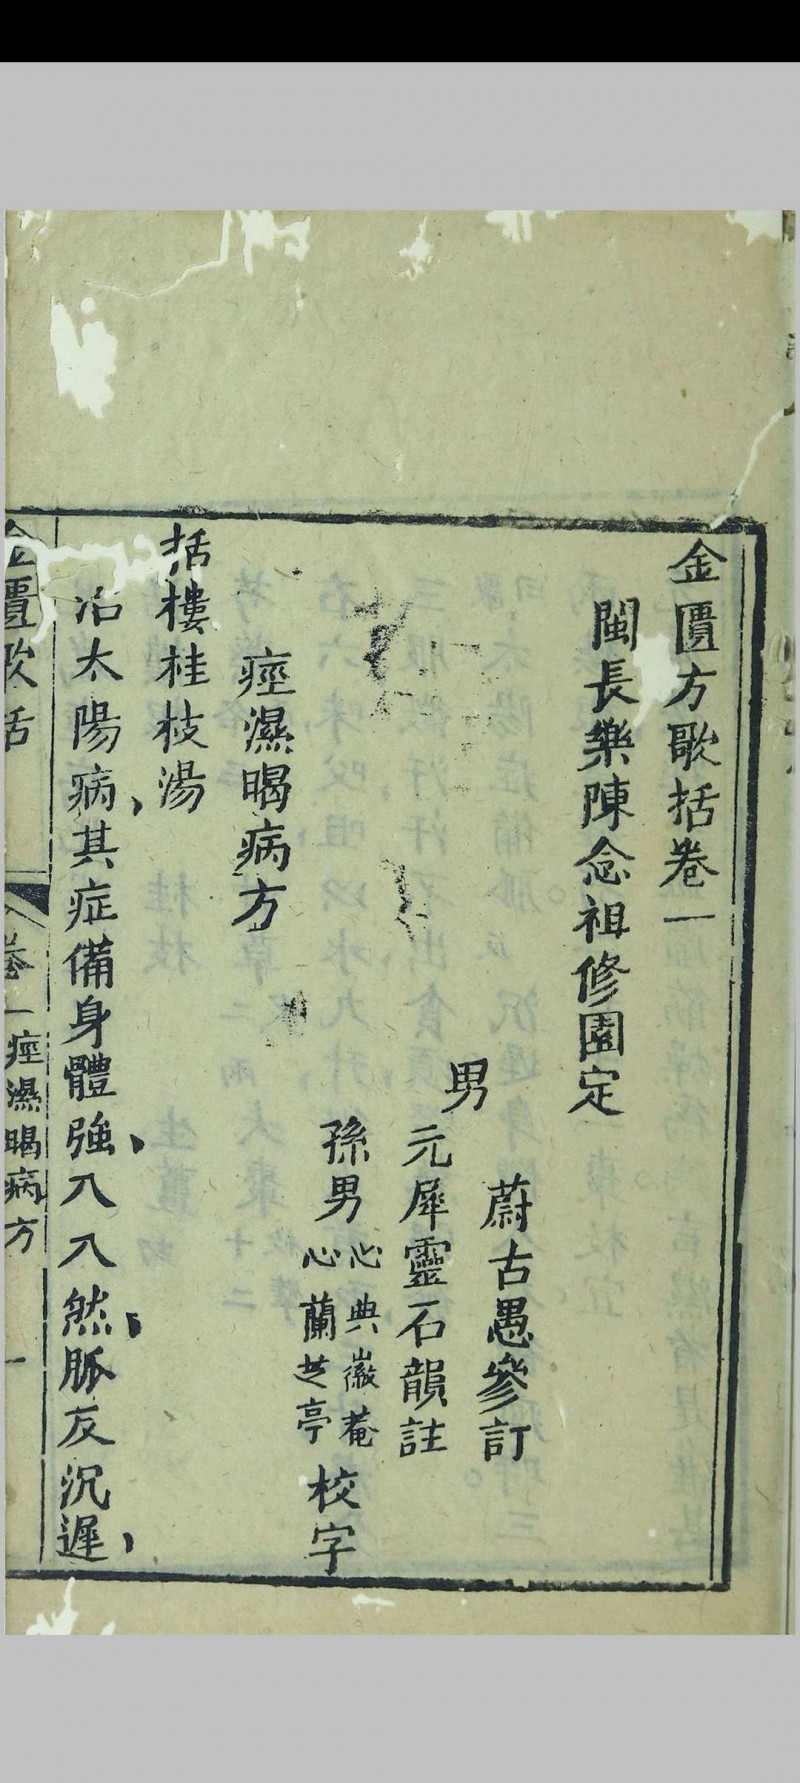 金匱方歌括卷一
閩長樂陳念祖修園定
男
蔚古愚參訂
元犀靈石韻註
孫男
心典徽菴
心蘭芝亭
校字
痙濕暍病方
括樓桂枝湯
治太陽病、其症備身體強、八八然、脈反沉遲、
金匱歌括
卷一痙濕暍病方
一